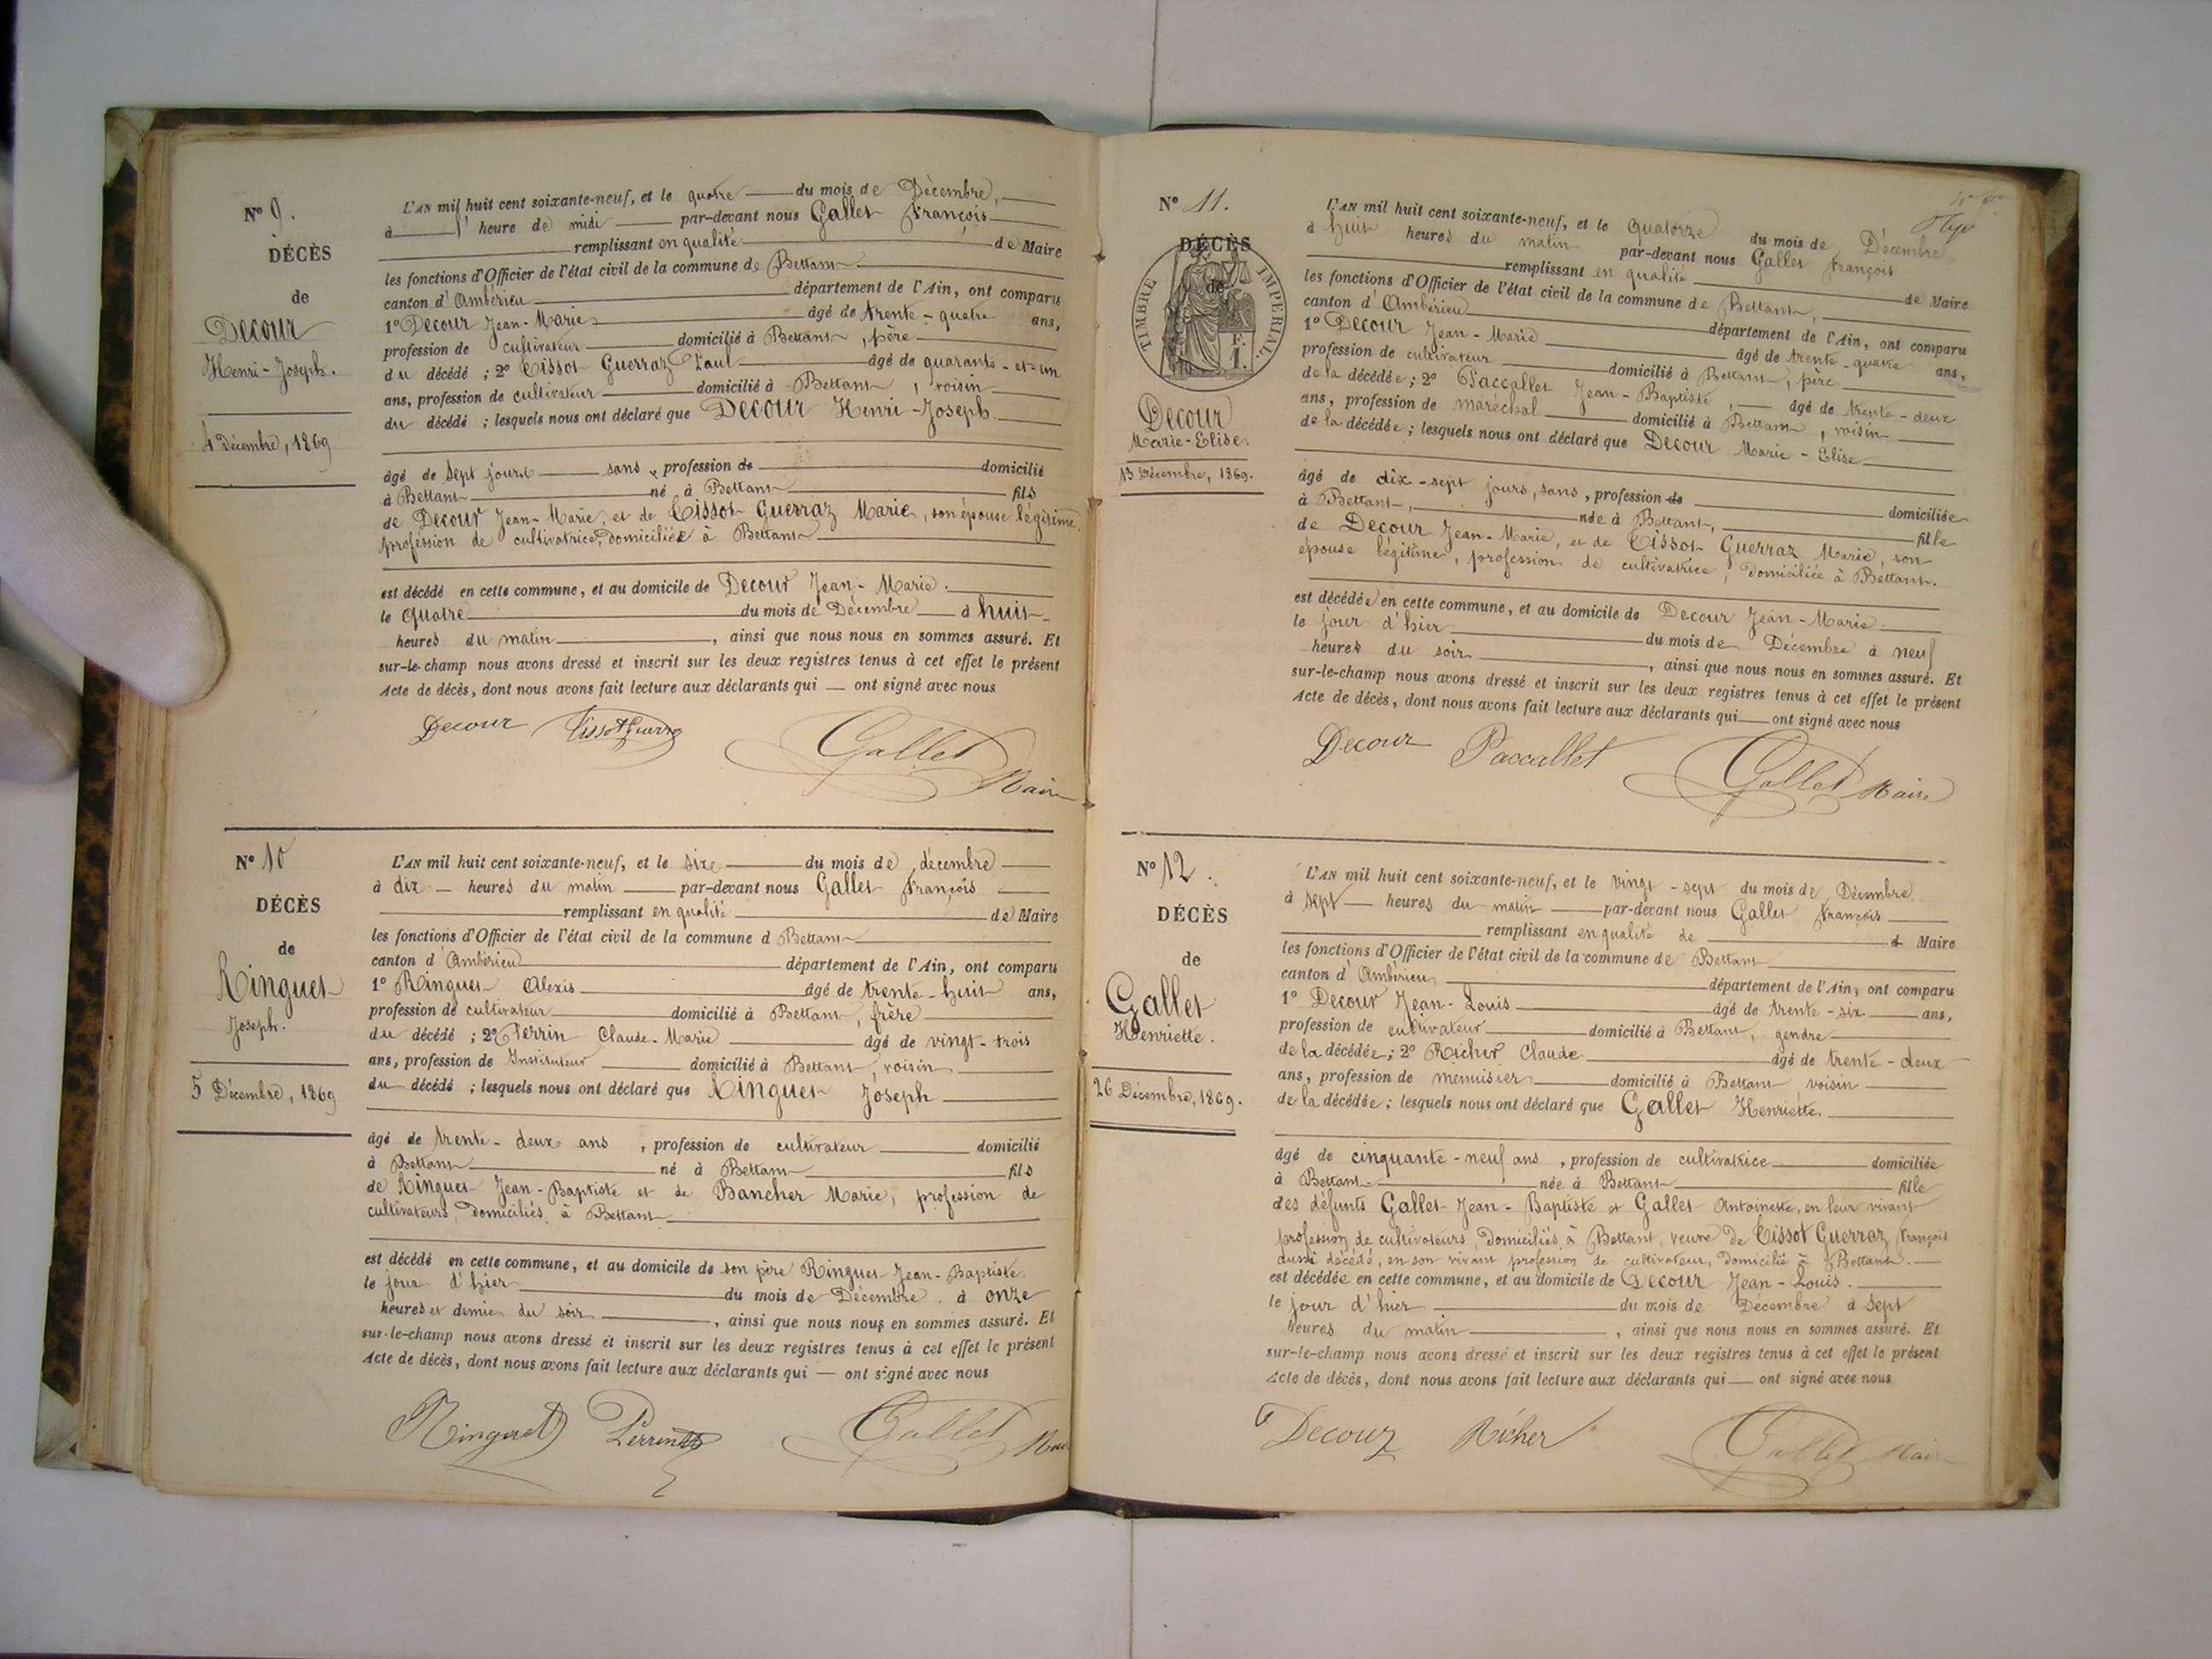 N° 9.
DÉCÈS
de
Decour
Henri-Joseph.
4 Décembre, 1869
L'AN mil huit cent soixante-neuf, et le quatre du mois de Décembre,
à l'heure de midi par-devant nous Gallet François
remplissant en qualité de Maire
les fonctions d'Officier de l'état civil de la commune de Bettant
canton d'Ambérieu département de l'Ain, ont comparu
1° Decour Jean-Marie âgé de trente-quatre ans,
profession de cultivateur domicilié à Bettant, père
du décédé ; 2° Tissot Guerraz Paul âgé de quarante-et-un
ans, profession de cultivateur domicilié à Bettant, voisin
du décédé ; lesquels nous ont déclaré que Decour Henri-Joseph
âgé de sept jours sans, profession de domicilié
à Bettant né à Bettant fils
de Decour Jean-Marie, et de Tissot Guerraz Marie, son épouse légitime,
profession de cultivatrice, domiciliée à Bettant
est décédé en cette commune, et au domicile de Decour Jean-Marie.
le quatre du mois de Décembre à huit
heures du matin, ainsi que nous nous en sommes assuré. Et
sur-le-champ nous avons dressé et inscrit sur les deux registres tenus à cet effet le présent
Acte de décès, dont nous avons fait lecture aux déclarants qui — ont signé avec nous
Decour Tissot Guerraz Gallet
Maire
N° 10
DÉCÈS
de
Ringuet
Joseph.
5 Décembre, 1869
L'AN mil huit cent soixante-neuf, et le six du mois de décembre
à dix heures du matin par-devant nous Gallet François
remplissant en qualité de Maire
les fonctions d'Officier de l'état civil de la commune d Bettant
canton d'Ambérieu département de l'Ain, ont comparu
1° Ringuet Alexis âgé de trente-huit ans,
profession de cultivateur domicilié à Bettant, frère
du décédé ; 2° Perrin Claude-Marie âgé de vingt-trois
ans, profession de Instituteur domicilié à Bettant, voisin
du décédé ; lesquels nous ont déclaré que Ringuet Joseph
âgé de trente-deux ans, profession de cultivateur domicilié
à Bettant né à Bettant fils
de Ringuet Jean-Baptiste et de Bancher Marie, profession de
cultivateurs, domiciliés à Bettant
est décédé en cette commune, et au domicile de son père Ringuet Jean-Baptiste.
le jour d'hier du mois de Décembre à onze
heures et demie du soir, ainsi que nous nous en sommes assuré. Et
sur-le-champ nous avons dressé et inscrit sur les deux registres tenus à cet effet le présent
Acte de décès, dont nous avons fait lecture aux déclarants qui — ont signé avec nous
Ringuet Perrin Gallet Maire
N° 11.
DÉCÈS
de
TIMBRE IMPÉRIAL.
F.
1.
Decour
Marie-Elise.
13 Décembre, 1869.
L'AN mil huit cent soixante-neuf, et le quatorze du mois de Décembre,
à huit heures du matin par-devant nous Gallet François
remplissant en qualité de Maire
les fonctions d'Officier de l'état civil de la commune de Bettant,
canton d'Ambérieu département de l'Ain, ont comparu
1° Decour Jean-Marie âgé de trente-quatre ans,
profession de cultivateur domicilié à Bettant, père
de la décédée ; 2° Paccallet Jean-Baptiste, âgé de trente-deux
ans, profession de maréchal domicilié à Bettant, voisin
de la décédée ; lesquels nous ont déclaré que Decour Marie-Elise
âgé de dix-sept jours, sans, profession de domiciliée
à Bettant, née à Bettant, fille
de Decour Jean-Marie, et de Tissot Guerraz Marie, son
épouse légitime, profession de cultivatrice, domiciliée à Bettant.
est décédée en cette commune, et au domicile de Decour Jean-Marie.
le jour d'hier du mois de Décembre à neuf
heures du soir, ainsi que nous nous en sommes assuré. Et
sur-le-champ nous avons dressé et inscrit sur les deux registres tenus à cet effet le présent
Acte de décès, dont nous avons fait lecture aux déclarants qui — ont signé avec nous
Decour Paccallet Gallet Maire
N° 12.
DÉCÈS
de
Gallet
Henriette.
26 Décembre, 1869.
L'AN mil huit cent soixante-neuf, et le vingt-sept du mois de Décembre
à sept heures du matin par-devant nous Gallet François
remplissant en qualité de d Maire
les fonctions d'Officier de l'état civil de la commune de Bettant
canton d'Ambérieu département de l'Ain, ont comparu
1° Decour Jean-Louis âgé de trente-six ans,
profession de cultivateur domicilié à Bettant, gendre
de la décédée ; 2° Richer Claude âgé de trente-deux
ans, profession de menuisier domicilié à Bettant voisin
de la décédée ; lesquels nous ont déclaré que Gallet Henriette,
âgé de cinquante-neuf ans, profession de cultivatrice domiciliée
à Bettant née à Bettant fille
des défunts Gallet Jean-Baptiste et Gallet Antoinette, en leur vivant
profession de cultivateurs, domiciliés à Bettant, veuve de Tissot Guerraz François
aussi décédé, en son vivant profession de cultivateur, domicilié à Bettant.
est décédée en cette commune, et au domicile de Decour Jean-Louis.
le jour d'hier du mois de Décembre à sept
heures du matin, ainsi que nous nous en sommes assuré. Et
sur-le-champ nous avons dressé et inscrit sur les deux registres tenus à cet effet le présent
Acte de décès, dont nous avons fait lecture aux déclarants qui — ont signé avec nous
Decour Richer Gallet Maire